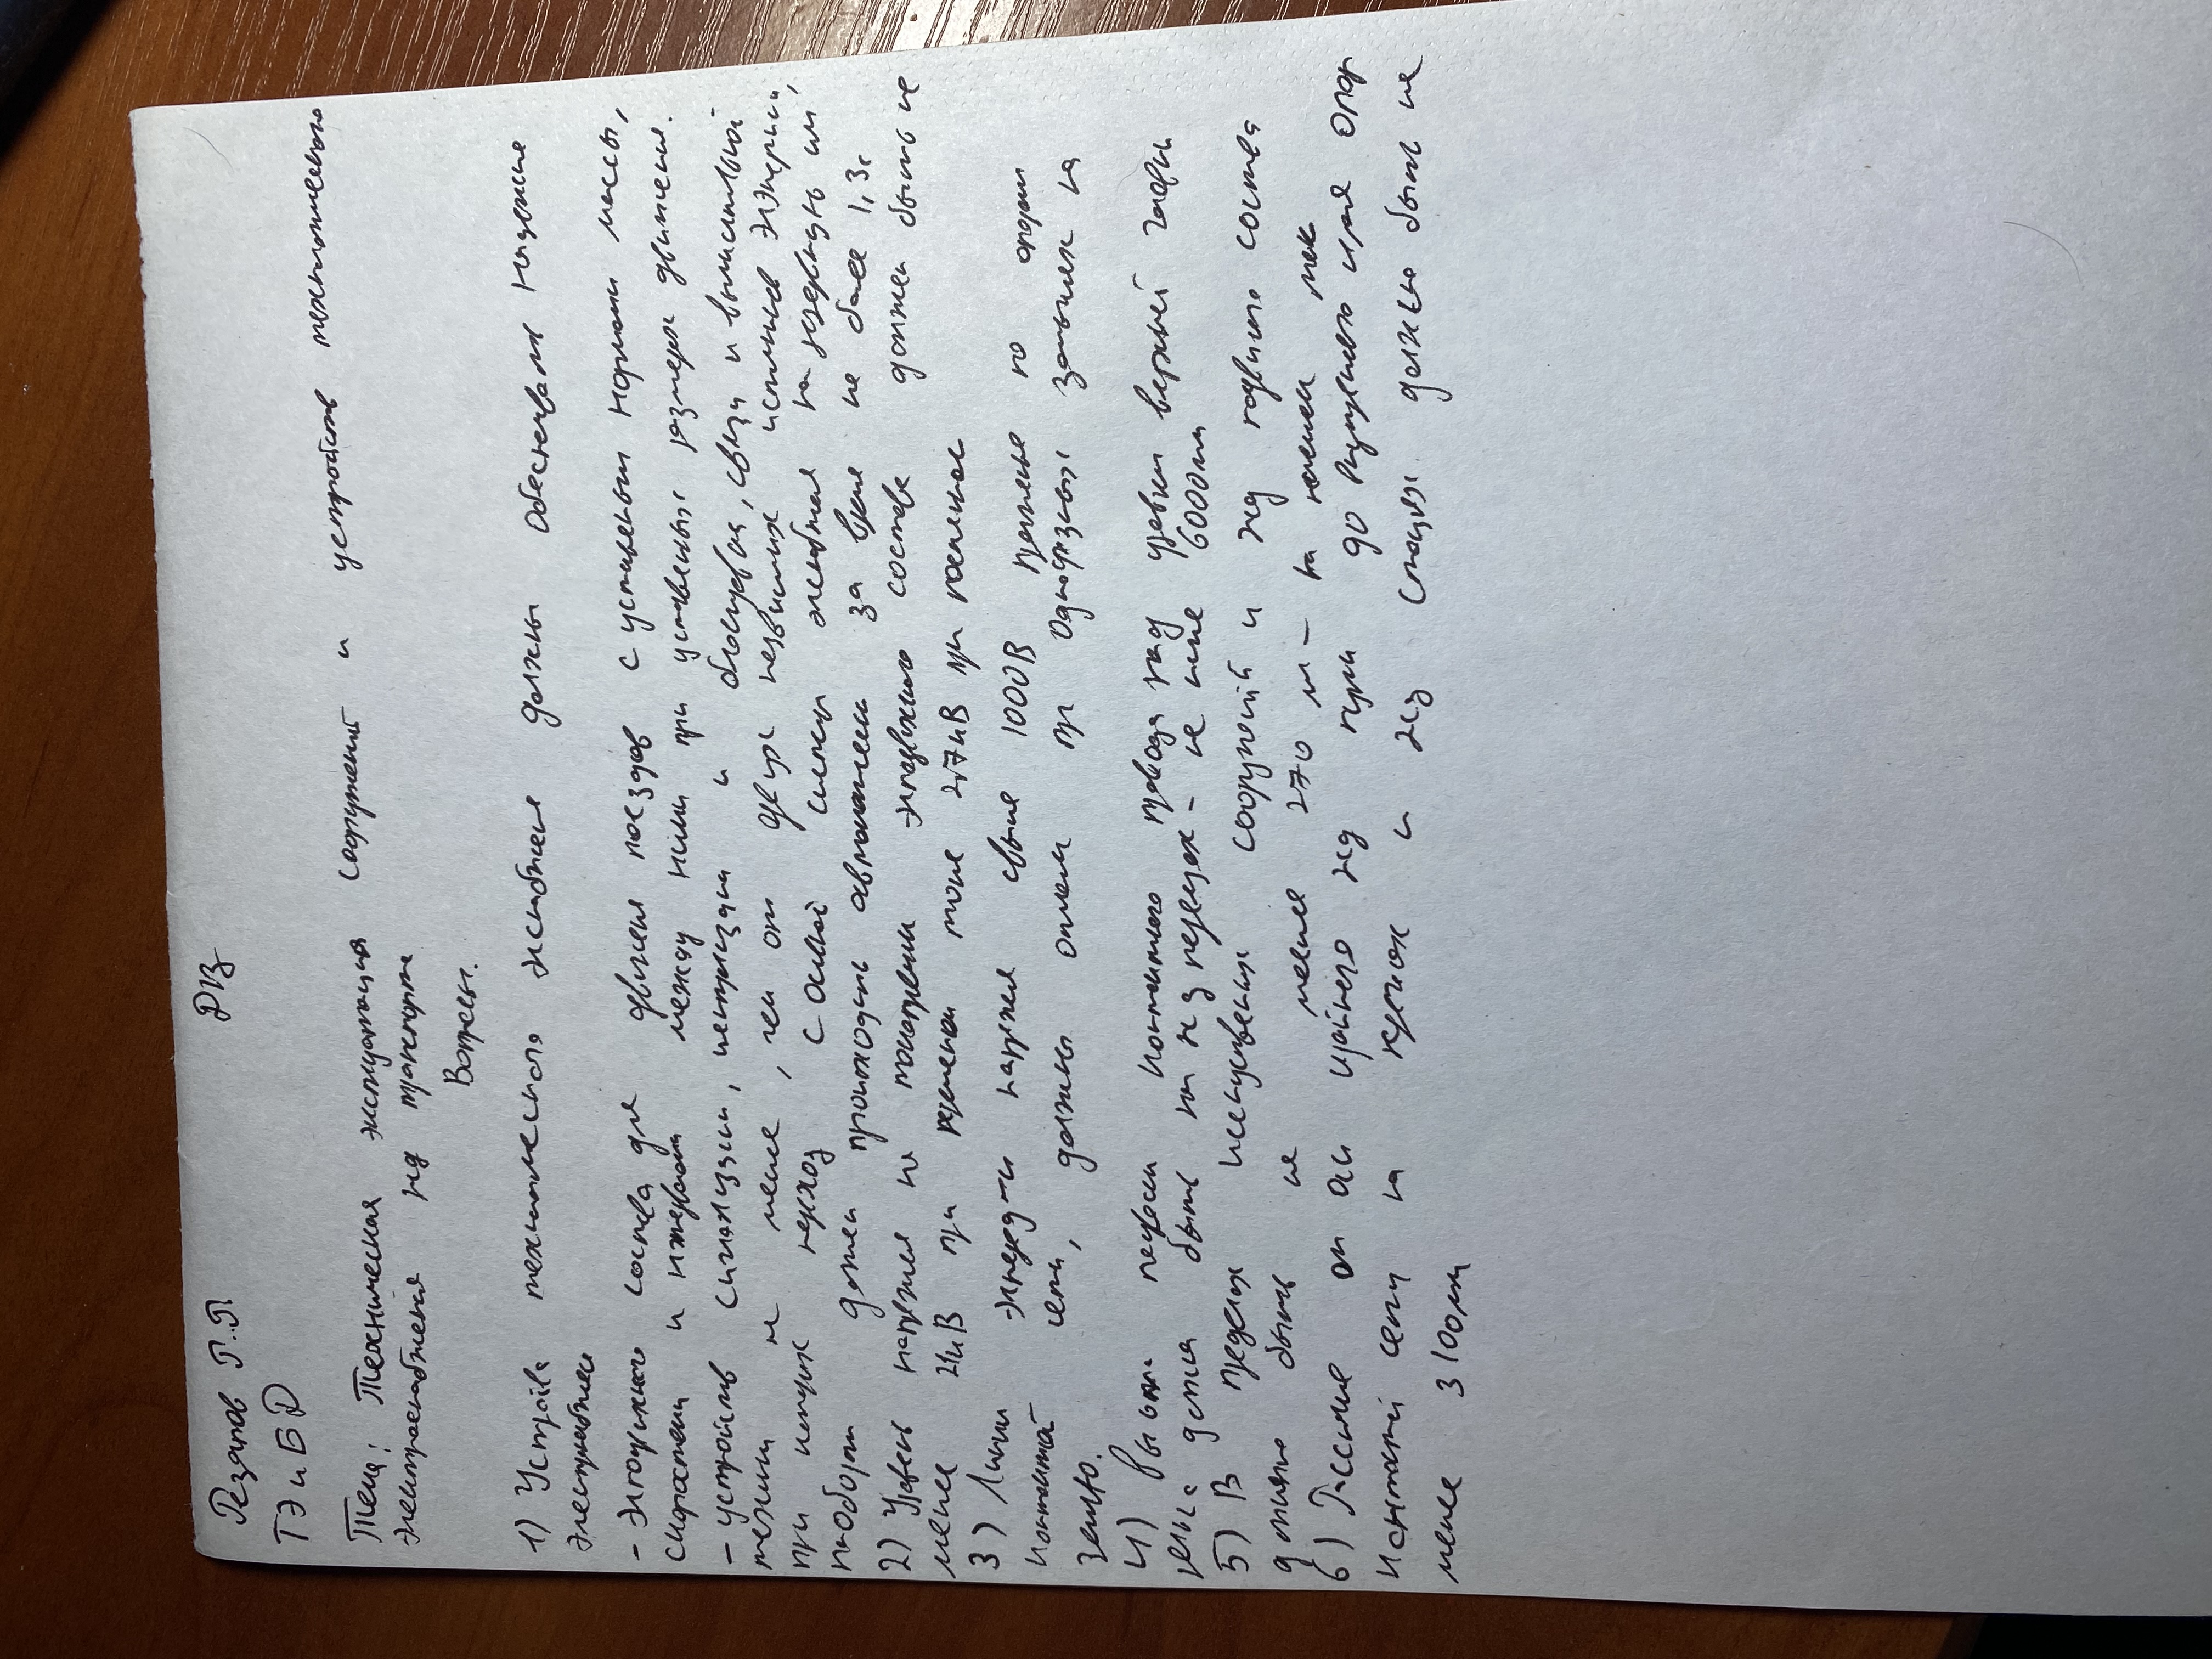 Резапов П.П РИЗ
ТЭ и БД
Тема: Техническая эксплуатация сооружений и устройств технического
электроснабжения жд транспорта
Вопросы.
1) Устройва технического эконабжения должны обеспечивать надежние
электроснабжение
- эподвижного состава для движения поездов с установлеными нормами массы,
скоростями и интервалами между ними при установленых размерах движения.
- устройств сигнализации, централизации и блокировки, связи и вычислительной
техники не менее, чем от двух независимых источников энэнергии,
при которых переход с основной системы экнабжения на резервную или
наоборот должен происходить автоматически за время не более 1,3с
2) Уровень напряжения на токоприемни эподвижного состава должен быть не
менее 21кВ при переменом токе 2,7кВ при постоянное
3) Линии эпередачи напряжен свыше 1000В по опорам
контактной сети, должны отключ при однофазных замыкан на
землю.
4) Высота подвески контактного провода над уровнем верхней головки
рельса должна быть на жд переездах - не ниже 6000мм
5) В пределах искуственных сооружений и жд подвижного состава
должно быть не менее 270 м - на постоянном токе
6) Рассояние от оси крайнего жд пути до внутренего края опор
контактной сети на перегонах и жд станциях должно быть не
менее 3100мм